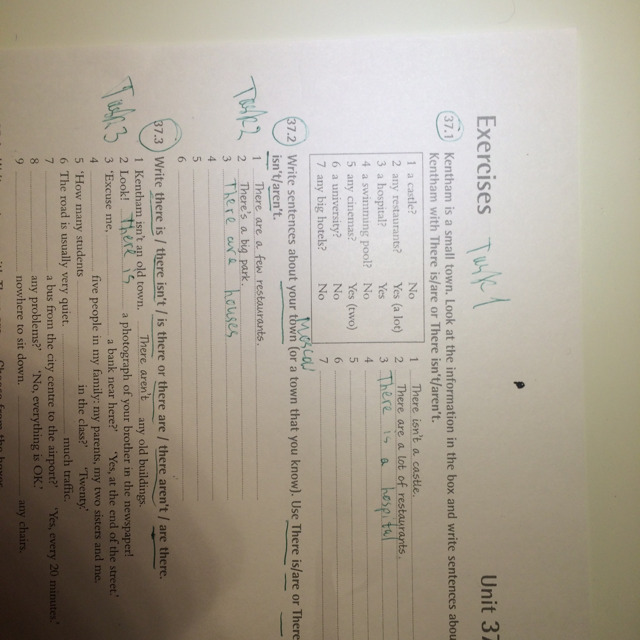 Exercises
Unit 37
Task 1
37.1 Kentham is a small town. Look at the information in the box and write sentences abou
Kentham with There is/are or There isn't/aren't.
1 a castle? No
2 any restaurants? Yes (a lot)
3 a hospital? Yes
4 a swimming pool? No
5 any cinemas? Yes (two)
6 a university? No
7 any big hotels? No
1 There isn't a castle.
2 There are a lot of restaurants.
3 There is a hospital
4
5
6
7
Moscow
37.2 Write sentences about your town (or a town that you know). Use There is/are or There
isn't/aren't.
Task 2
1 There are a few restaurants.
2 There's a big park.
3 There are houses
4
5
6
37.3 Write there is / there isn't / is there or there are / there aren't / are there.
Task 3
1 Kentham isn't an old town. There aren't any old buildings.
2 Look! there is a photograph of your brother in the newspaper!
3 'Excuse me, a bank near here?' 'Yes, at the end of the street.'
4 five people in my family: my parents, my two sisters and me.
5 'How many students in the class?' 'Twenty.'
6 The road is usually very quiet. much traffic.
7 a bus from the city centre to the airport?' 'Yes, every 20 minutes.'
8 any problems?' 'No, everything is OK.'
9 nowhere to sit down. any chairs.